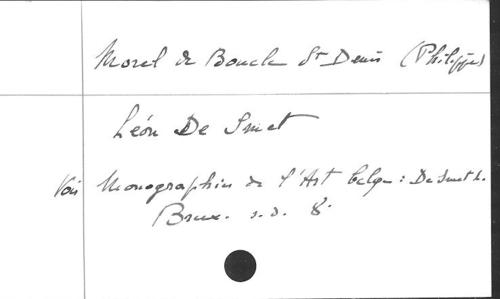 Morel de Boucle St Denis (Philippe)
Léon De Smet
Voir Monographies de l'Art belge: De Smet L.
Brux. s.d. 8°